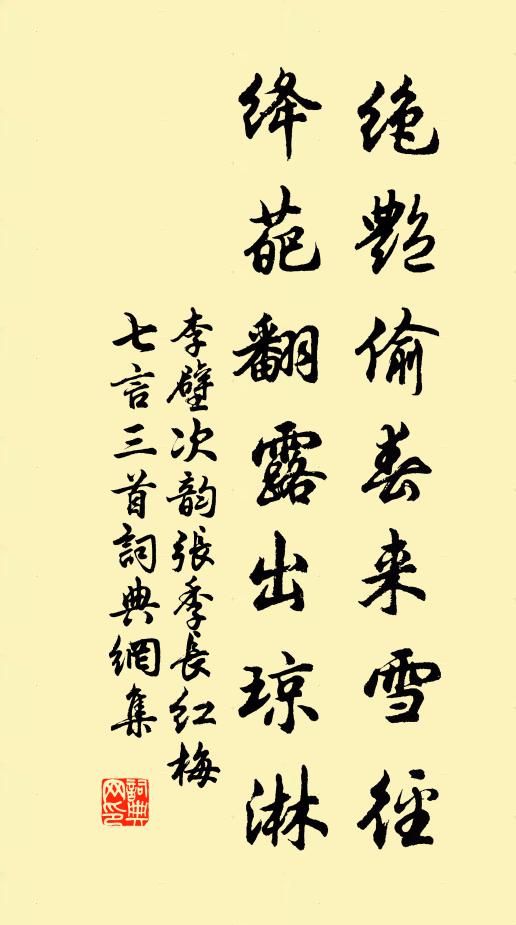 绝艷偷春来雪徑
绛葩翻露出琼淋
李壁次韵張季長红梅
七言三首詞典網集
詞典网印